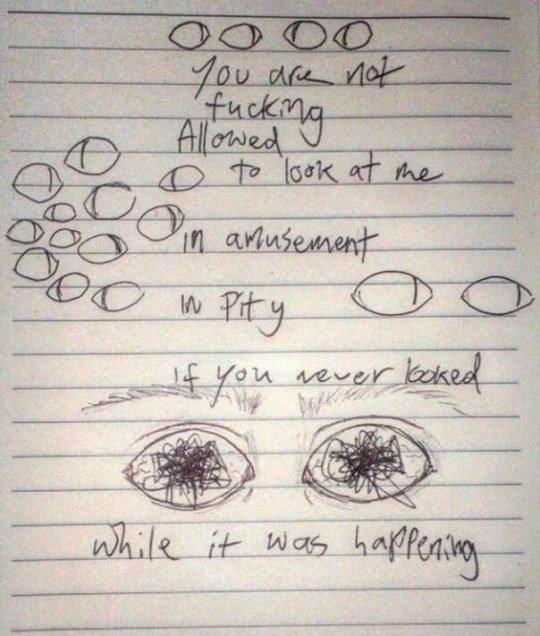 You are not
fucking
Allowed
to look at me
in amusement
in Pity
if you never looked
while it was happening